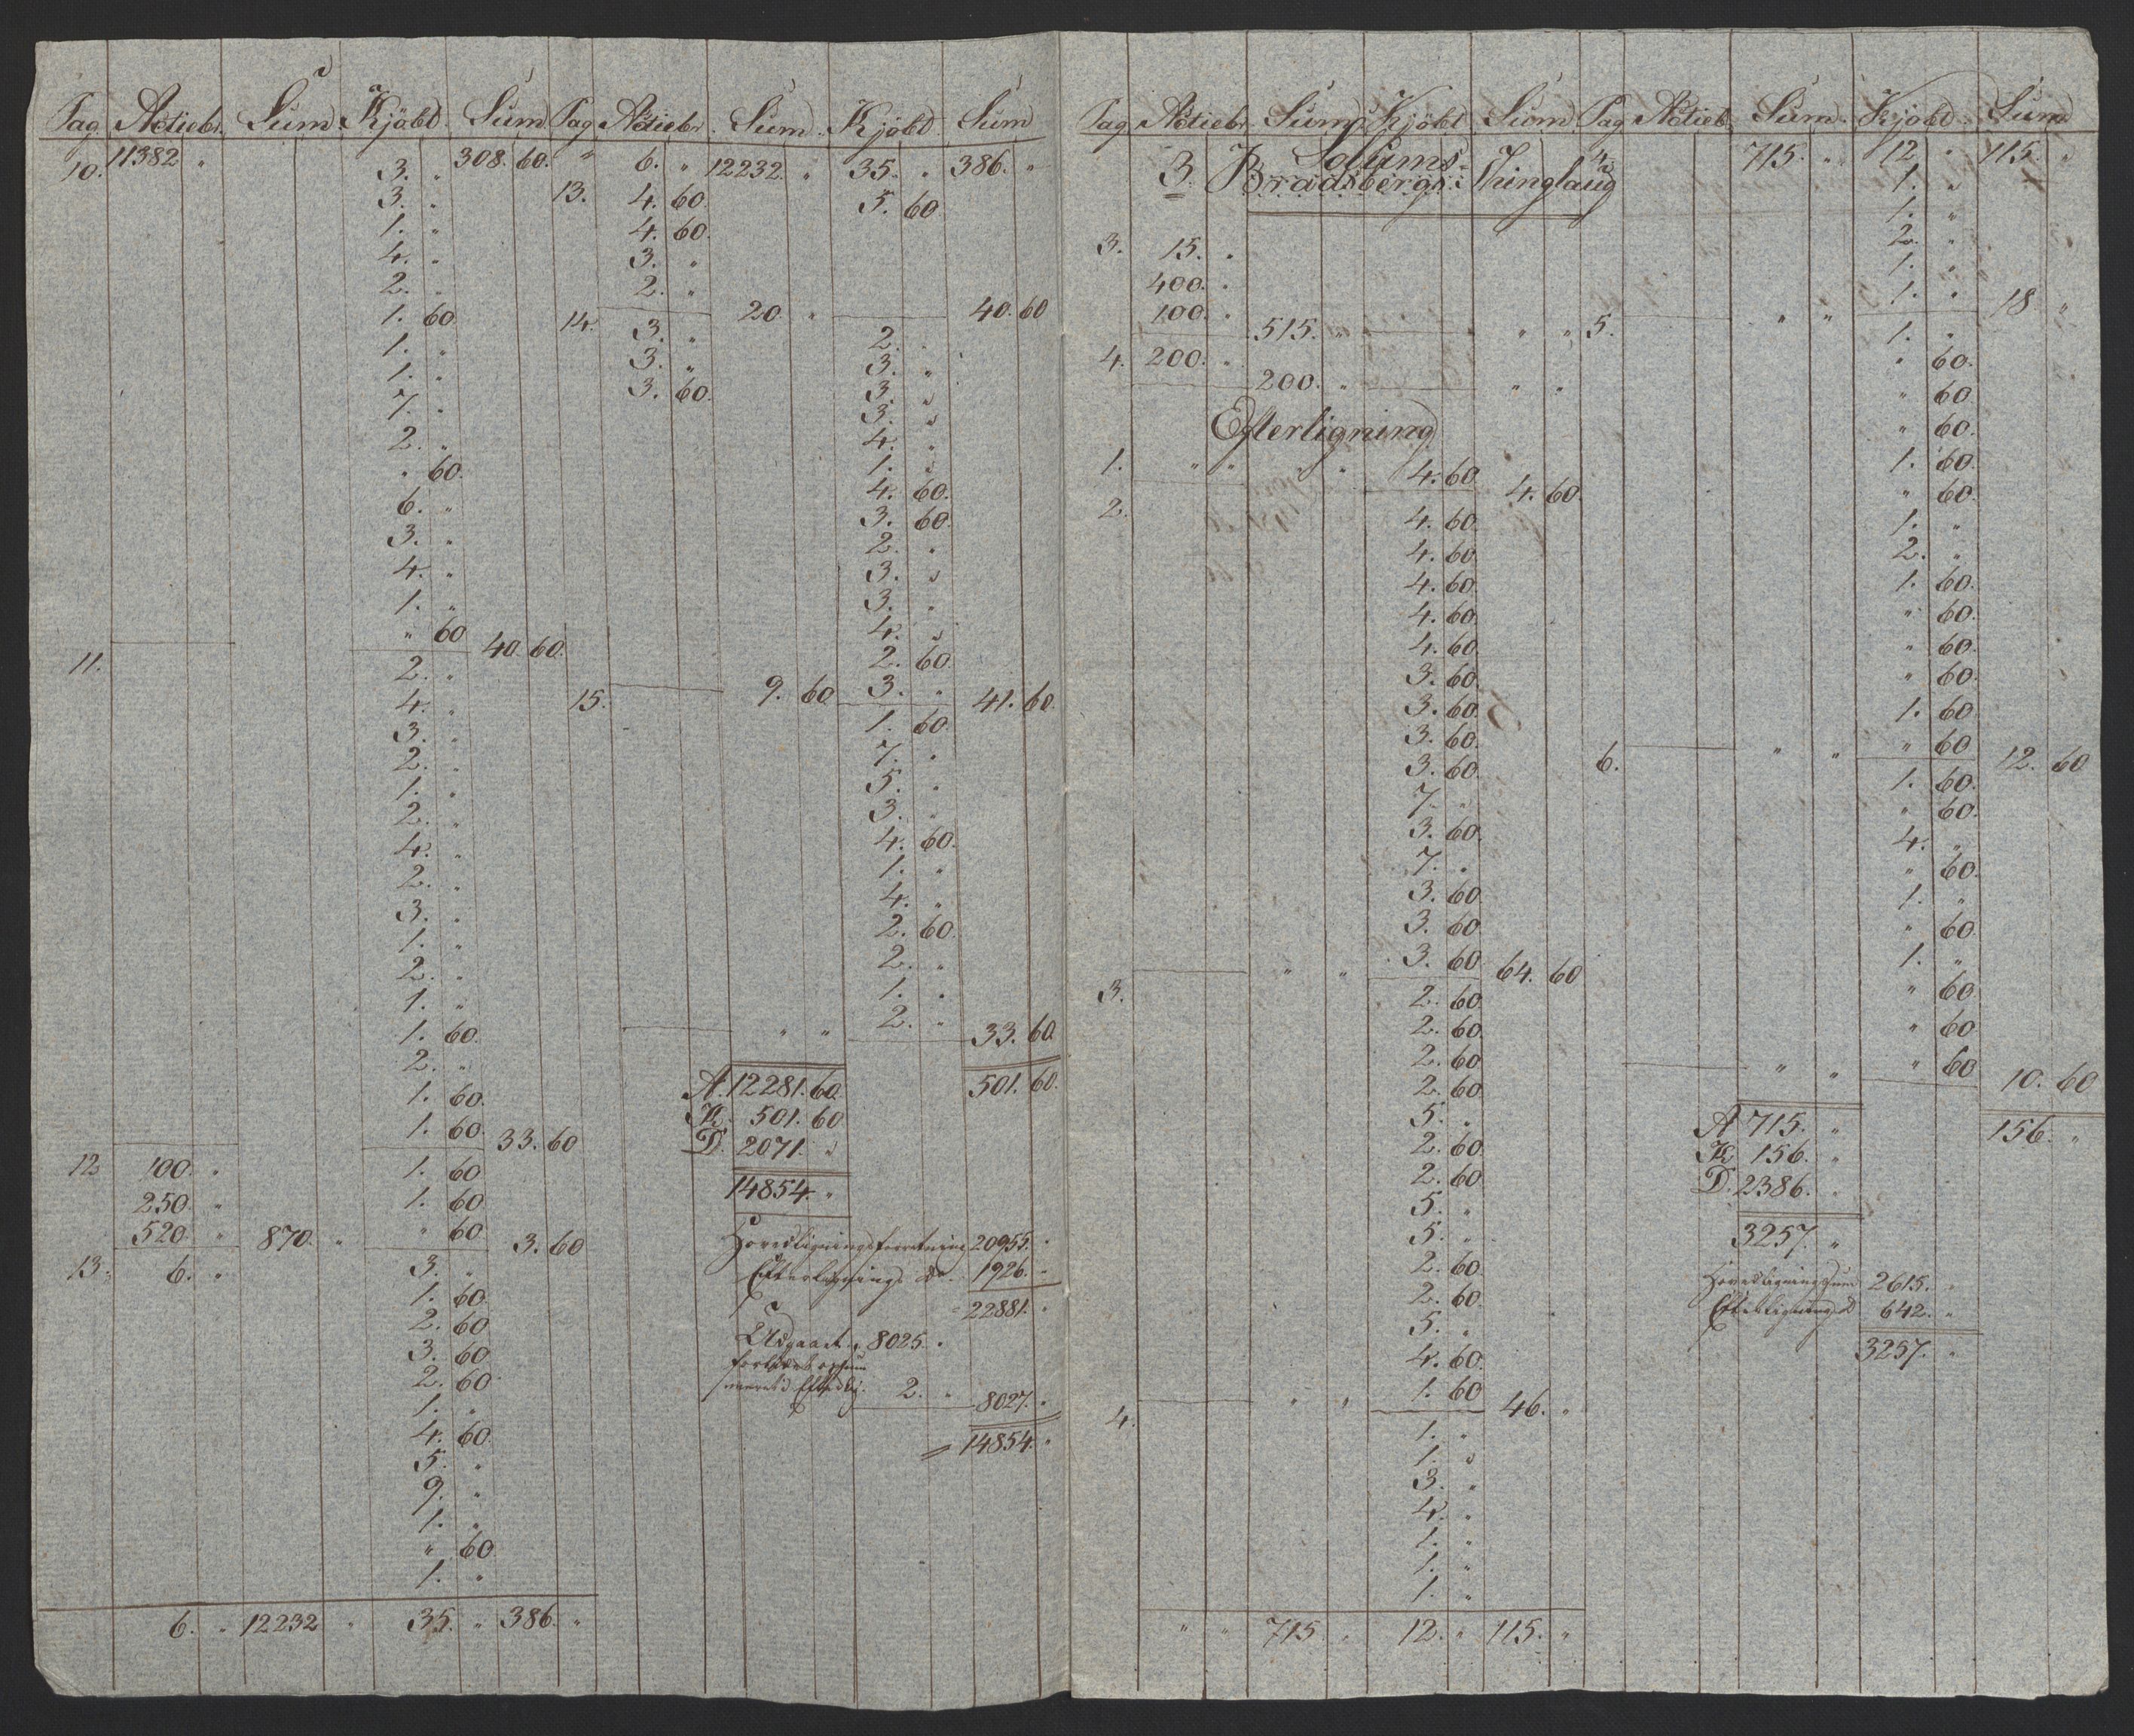 Pag Actiebr. Sum. Kjöbd. Sum
10. 11382 " 3. " 308. 60.
3. "
1. "
4. "
2. "
1. 60
1. "
1. "
7. "
2. "
" 60.
6. "
3. "
4. "
1. "
" 60 40. 60.
11. 2. "
4. "
3. "
2. "
1. "
2. "
4. "
2. "
3. "
1. "
2. "
1. "
1. 60.
2. "
1. 60.
1. 60. 33. 60
12 100. " 1. 60
250. " 1. 60
520. " 870. " " 60 3. 60
13. 6. " 3. "
1. 60
2. 60
3. 60
2. 60
1. "
4. 60.
5. "
9. "
1. "
" 60
1. "
6. " 12232 " 35. " 386. "
Pag Actiebr. Sum. Kjöbd. Sum
" 6. " 12232. " 35. " 386. "
13. 4. 60. 5. 60
4. 60.
3. "
2. " 20. " 40. 60
14. 3. " 2. "
3. " 3. "
3. 60. 3. "
3. "
4. "
1. "
4. 60.
3. 60.
2. "
3. "
3. "
4. "
2. 60.
9. 60 3. " 41. 60
15. 1. 60.
7. "
5. "
3. "
4. 60.
1. "
4. "
2. 60.
2. "
1. "
" " 2. " 33. 60
A. 12281. 60. 501. 60.
K. 501. 60
D. 2071. "
14854. "
Hovedligningsforretning 20955. "
Efterlignings do. 1926. "
22881. "
Udgaaet 8025. "
2. " 8027. "
= 14854. "
Pag Actiebr. Sum. Kjöbd. Sum
3. Solums
Bradsbergs Thinglaug
3. 15. "
400. "
100. " 515. " " "
4. 200. " 200. " " "
Efterligning
1. " " " 4. 60 4. 60.
2. 4. 60.
4. 60.
4. 60.
4. 60
4. 60
3. 60
3. 60.
3. 60.
3. 60.
7. "
3. 60.
7. "
3. 60
3. 60
" " 3. 60 64. 60
3. 2. 60
2. 60
2. 60
2. 60.
5. "
2. 60
2. 60
5. "
5. "
2. 60
2. 60
5. "
4. 60.
" " 1. 60 46. "
4. 1. "
1. "
3. "
4. "
1. "
1. "
1. "
" " 715 " 12. " 115. "
Pag Actiebr. Sum. Kjöbd. Sum
4. 715. " 12 " 115. "
1. "
1. "
2. "
1. "
" " 1. " 18 "
5. 1. "
" 60.
" 60
" 60.
1. 60
" 60
1. "
2. "
1. 60.
" 60.
" 60.
" 60.
1. 60
" " " 60 12. 60
6. 1. 60.
" 60.
4. "
" 60.
1. "
" 60.
1. "
" 60.
" 60.
" " " 60 10. 60
A 715. " 156. "
K 156. "
D. 2386. "
3257. "
Hovedlignings Sum 2615. "
Efterlignings do 642. "
3257. "